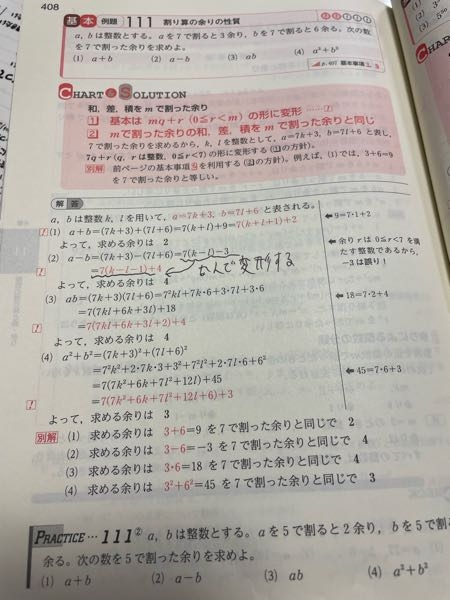 408
基本 例題 111 割り算の余りの性質
a, b は整数とする。a を7で割ると3余り，b を7で割ると6余る。次の
数を7で割った余りを求めよ。
(1) a+b (2) a−b (3) ab (4) a²+b²
CHART & SOLUTION
和，差，積を m で割った余り
1 基本は mq+r (0≦r<m) の形に変形 ……!
2 m で割った余りの和，差，積を m で割った余りと同じ
7で割った余りを求めるから，k, l を整数として，a=7k+3，b=7l+6 と表し，
7q+r (q, r は整数，0≦r<7) の形に変形する(1の方針)。
別解 前ページの基本事項3を利用する(2の方針)。例えば，(1)では，3+6=9
を7で割った余りと等しい。
解答
a, b は整数 k, l を用いて，a=7k+3，b=7l+6 と表される。
(1) a+b=(7k+3)+(7l+6)=7(k+l)+9=7(k+l+1)+2
よって，求める余りは 2
← 9=7・1+2
(2) a−b=(7k+3)−(7l+6)=7(k−l)−3
=7(k−l−1)+4
なんで変形する
よって，求める余りは 4
← 余り r は 0≦r<7 を満
たす整数であるから，
−3 は誤り！
(3) ab=(7k+3)(7l+6)=7²kl+7k・6+3・7l+3・6
=7(7kl+6k+3l)+18
=7(7kl+6k+3l+2)+4
よって，求める余りは 4
← 18=7・2+4
(4) a²+b²=(7k+3)²+(7l+6)²
=7²k²+2・7k・3+3²+7²l²+2・7l・6+6²
=7(7k²+6k+7l²+12l)+45
=7(7k²+6k+7l²+12l+6)+3
よって，求める余りは 3
← 45=7・6+3
別解 (1) 求める余りは 3+6=9 を7で割った余りと同じで 2
(2) 求める余りは 3−6=−3 を7で割った余りと同じで 4
(3) 求める余りは 3・6=18 を7で割った余りと同じで 4
(4) 求める余りは 3²+6²=45 を7で割った余りと同じで 3
PRACTICE… 111② a, b は整数とする。a を5で割ると2余り，b を5で割
余る。次の数を5で割った余りを求めよ。
(1) a+b (2) a−b (3) ab (4) a²+b²